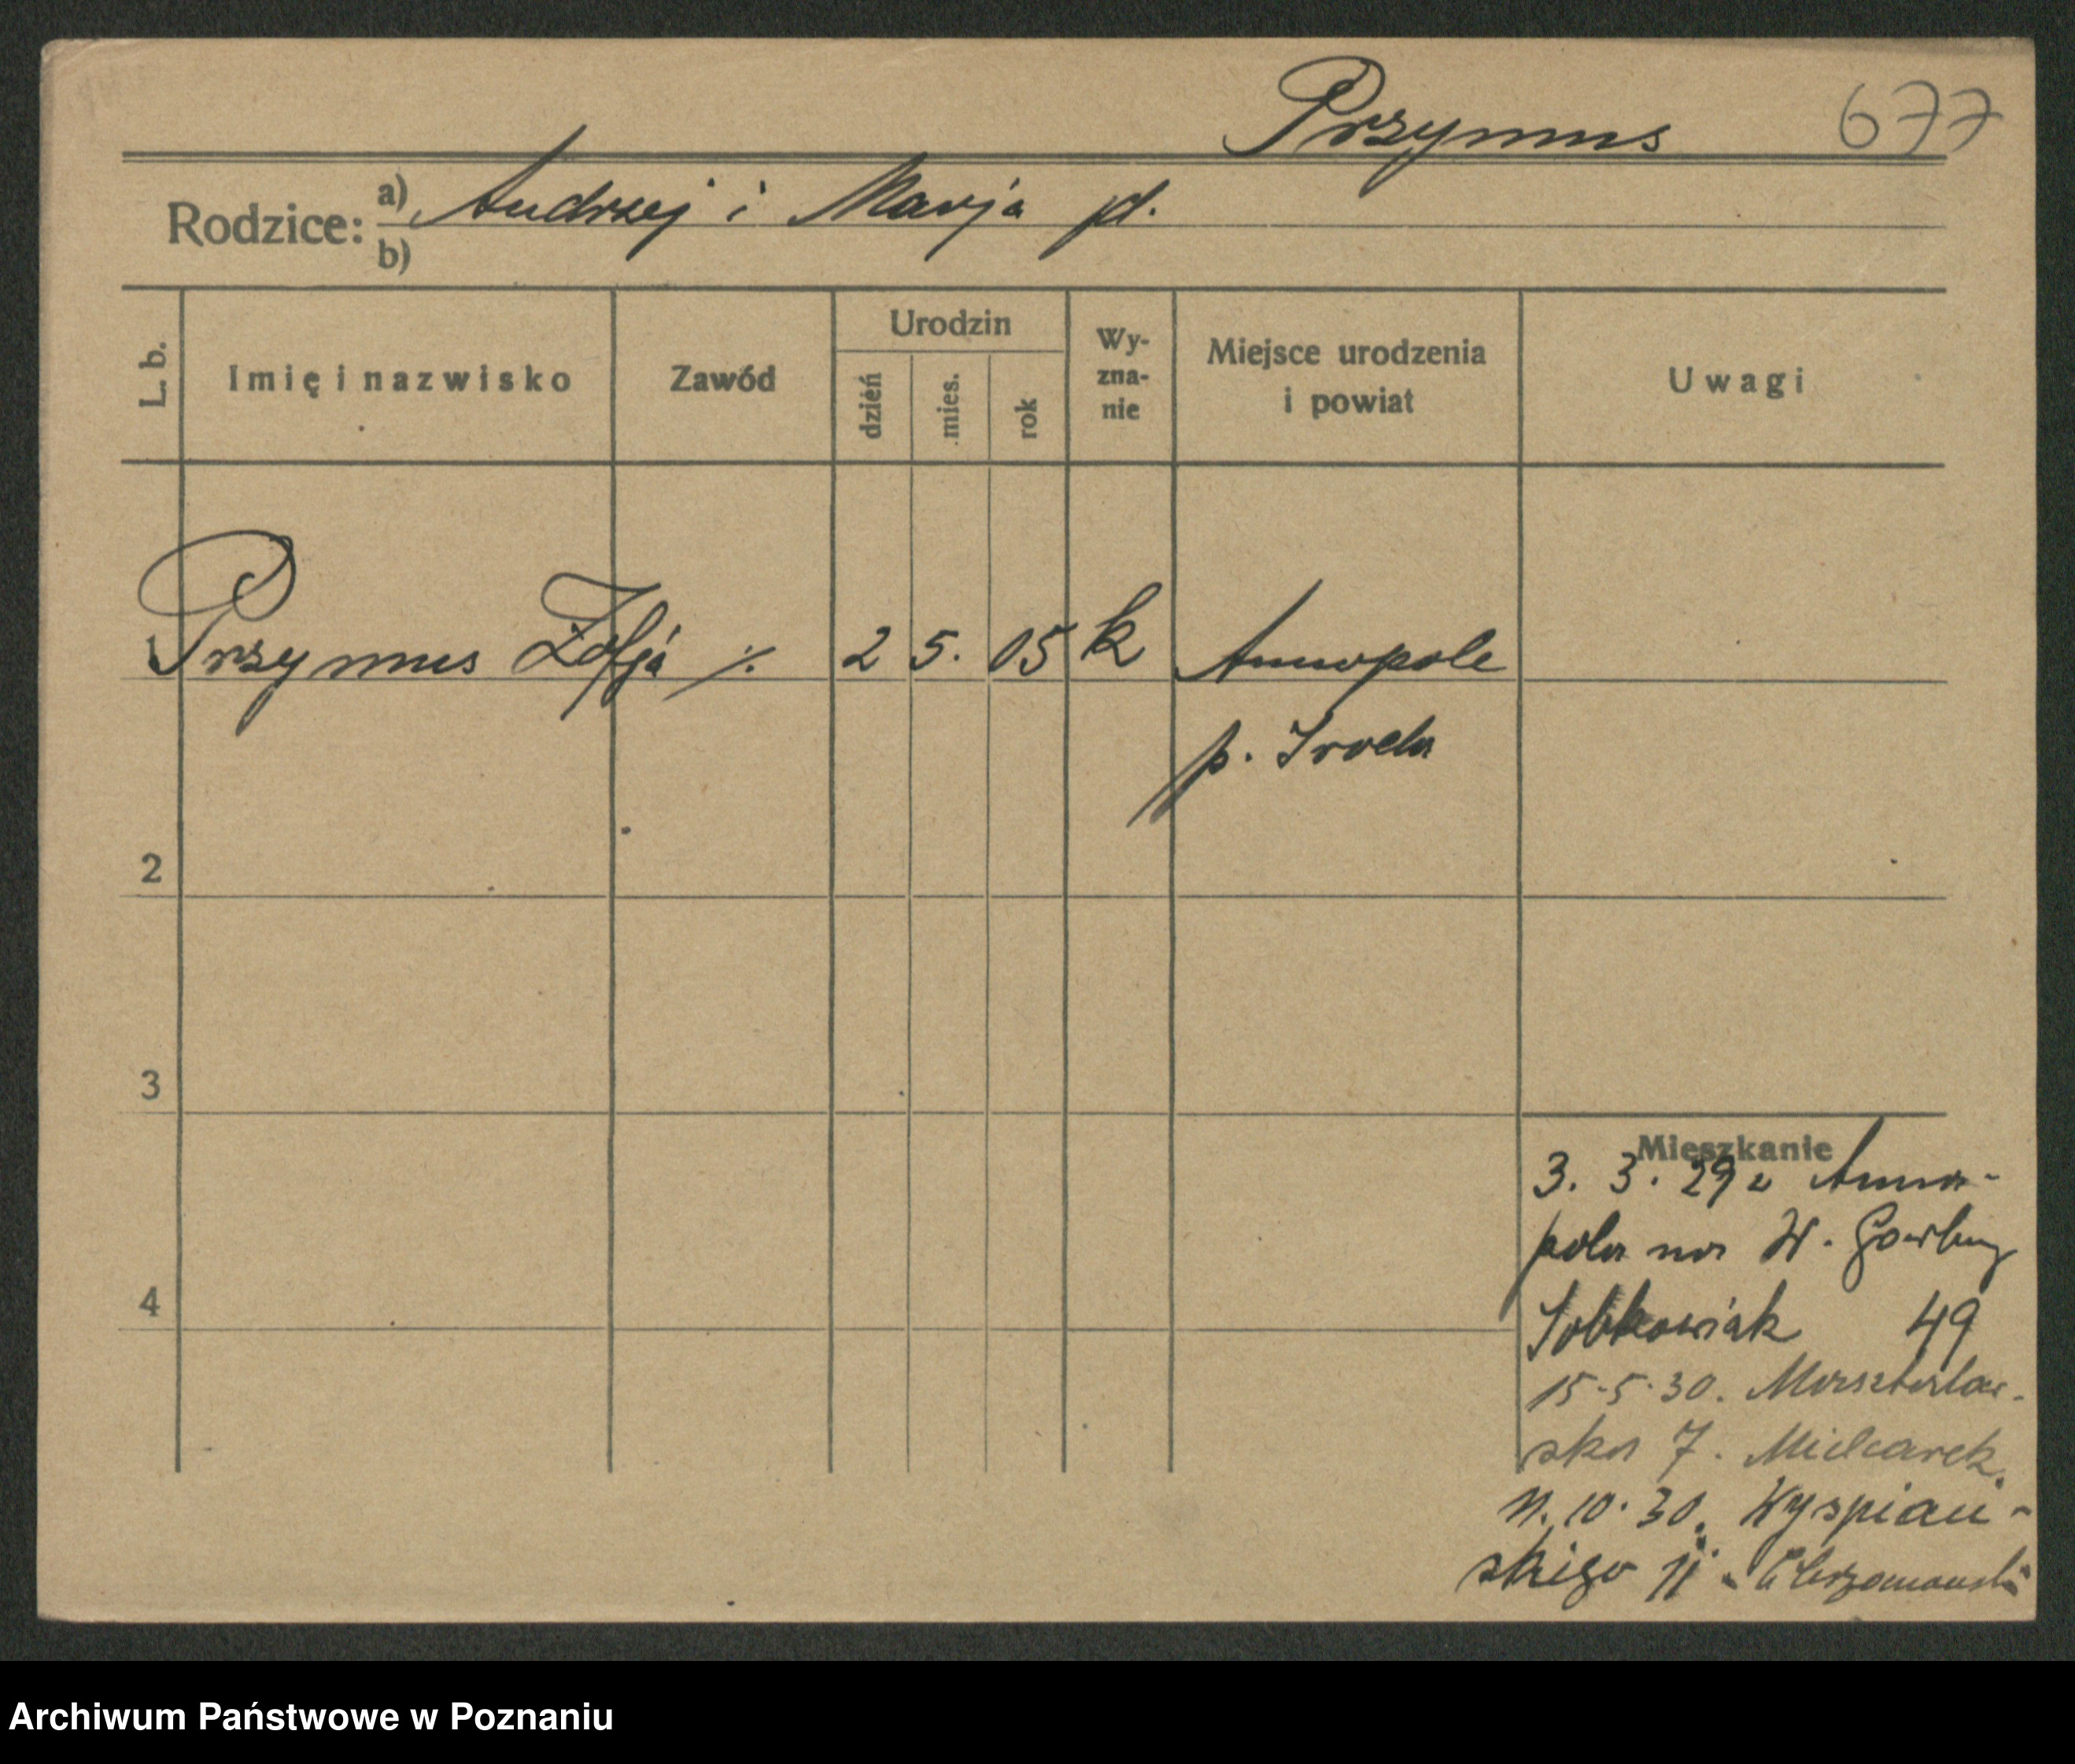 Przymus 677
Rodzice: a) Andrzej i Marja pd.
b)
L. b.
Imię i nazwisko
Zawód
Urodzin
dzień
mies.
rok
Wy-
zna-
nie
Miejsce urodzenia
i powiat
Uwagi
1 Przymus Zofja ./. 2 5. 05 k Annopole
p. Sroda
2
3
4
Mieszkanie
3. 3. 29 z Anno-
pola na W. Garbary
Sobkowiak 49
15.5.30.
ska 7. Mielcarek.
11.10.30. Wyspiań-
skigo 11.
Archiwum Państwowe w Poznaniu